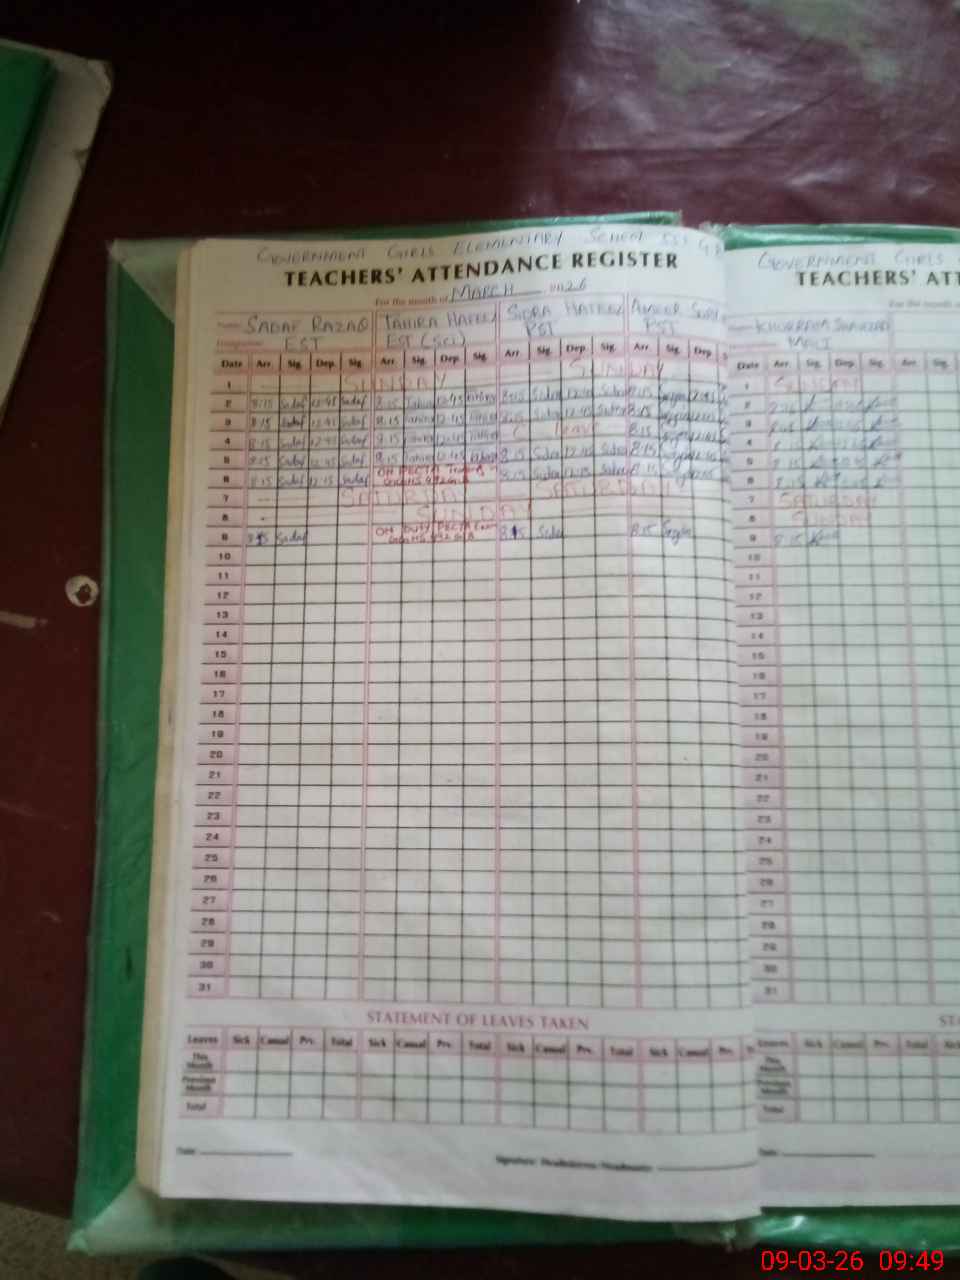 GOVERNMENT GIRLS ELEMENTARY SCHOOL
TEACHERS' ATTENDANCE REGISTER
For the month of MARCH 2026
Name SADAF RAZAQ TAHIRA HAFEEZ SIDRA HAFEEZ AMBER
Designation EST EST (SCI) PST PST
Date Arr. Sig. Dep. Sig. Arr. Sig. Dep. Sig. Arr. Sig. Dep. Sig. Arr. Sig. Dep. S
1 SUNDAY SUNDAY
2 8:15 Sadaf 12:45 Sadaf 8:15 Tahira 12:45 Tahira 8:15 Sidra 12:45 Sidra 8:15 12:45
3 8:15 Sadaf 12:45 Sadaf 8:15 Tahira 12:45 Tahira 8:15 Sidra 12:45 Sidra 8:15 12:45
4 8:15 Sadaf 12:45 Sadaf 8:15 Tahira 12:45 Tahira C leave 8:15 12:45
5 8:15 Sadaf 12:45 Sadaf 8:15 Tahira 12:45 Tahira 8:15 Sidra 12:45 Sidra 8:15 12:45
6 8:15 Sadaf 12:15 Sadaf ON PECTA 8:15 Sidra 12:15 Sidra 8:15 12:15
7 SATURDAY SATURDAY
8 SUNDAY
9 8:15 Sadaf ON DUTY PECTA Exam 8:15 Sidra 8:15
10
11
12
13
14
15
16
17
18
19
20
21
22
23
24
25
26
27
28
29
30
31
STATEMENT OF LEAVES TAKEN
Leaves Sick Casual Prv. Total Sick Casual Prv. Total Sick Casual Prv. Total Sick Casual Prv.
This Month
Previous Month
Total
Date
Signature Headmistress/Headmaster
GOVERNMENT GIRLS
TEACHERS' ATT
For the month
Name KHURRAM SHAHZAD
Designation MALI
Date Arr. Sig. Dep. Sig. Arr. Sig.
1 SUNDAY
2
3
4
5 8:15
6 8:15
7 SATURDAY
8 SUNDAY
9 8:15
10
11
12
13
14
15
16
17
18
19
20
21
22
23
24
25
26
27
28
29
30
31
STA
Leaves Sick Casual Prv. Total Sick
This Month
Previous Month
Total
Date
09-03-26 09:49